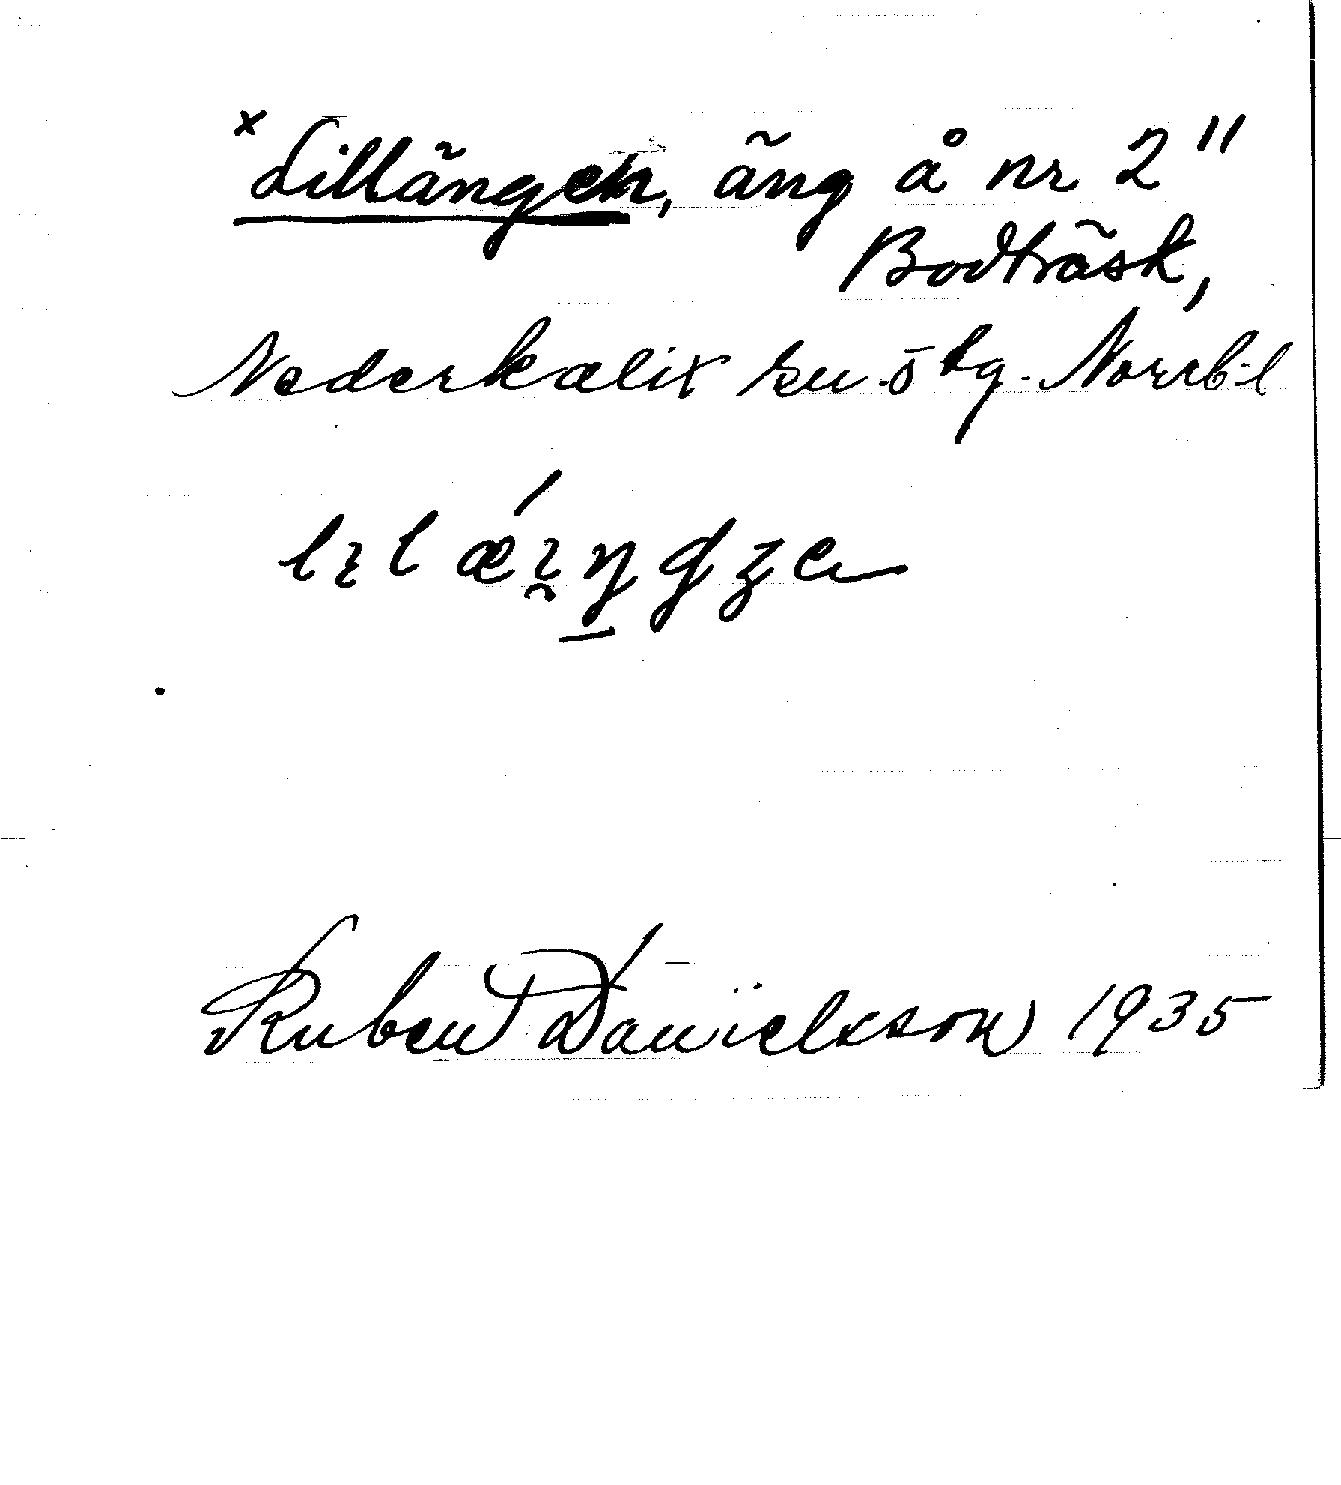 x Lillängen, äng å nr 2"
Bodträsk,
Nederkalix sn. ö tg. Norrb.l
Ruben Danielsson 1935